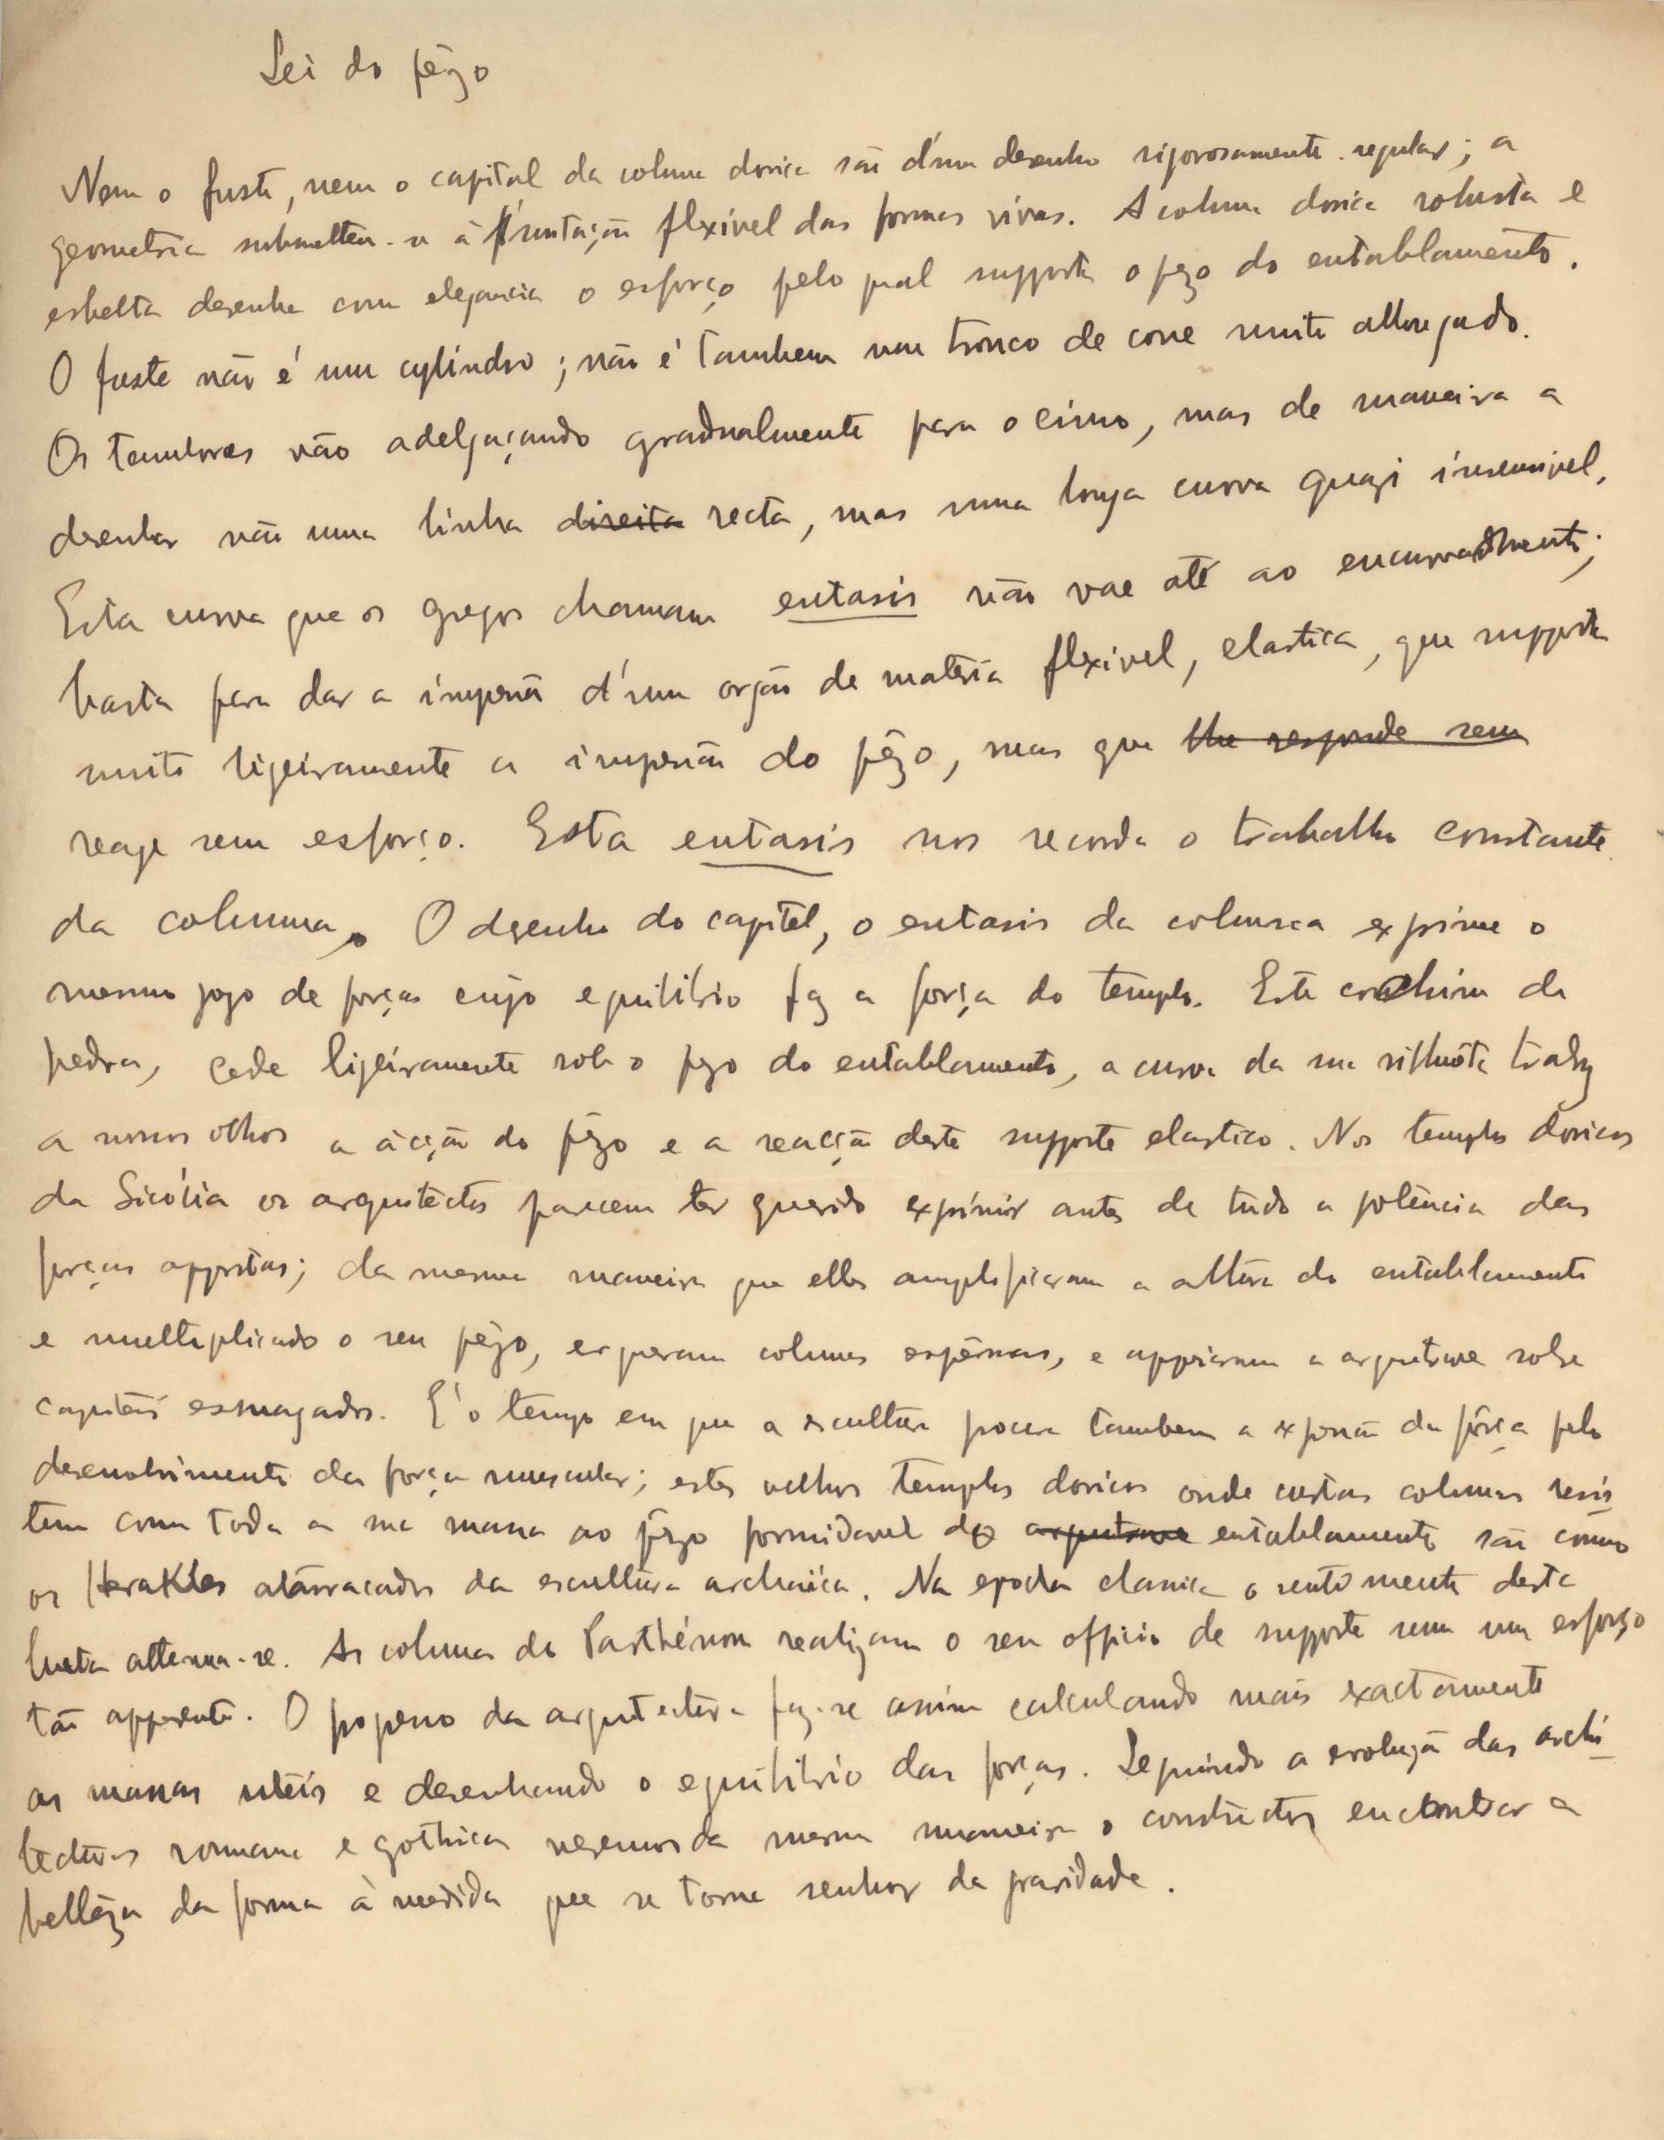 Lei do pêzo
Nem o fuste, nem o capitel da coluna dorica são d'um desenho rigorosamente regular; a
geometria submetteu-se á imitação flexivel das formas vivas. A coluna dorica robusta e
esbelta desenha com elegancia o esforço pelo qual supporta o pezo do entablamento.
O fuste não é um cylindro; não é tambem um tronco de cone muito allongado.
Os tambores vão adelgaçando gradualmente para o cimo, mas de maneira a
desenhar não uma linha direita recta, mas uma longa curva quazi insensivel.
Esta curva que os gregos chamam entasis não vae até ao encurvamento;
basta para dar a impressão d'um orgão de materia flexivel, elastica, que supporta
muito ligeiramente a impressão do pêzo, mas que lhe responde sem
reage sem esforço. Esta entasis nos recorda o trabalho constante
da columna. O dezenho do capitel, o entasis da columna exprime o
mesmo jogo de forças cujo equilibrio faz a força do templo. Este cochim de
pedra, cede ligeiramente sob o pezo do entablamento, a curva da sua silhuêta traduz
a nossos olhos a acção do pêzo e a reacção deste supporte elastico. Nos templos doricos
da Sicilia os arquitectos parecem ter querido exprimir antes de tudo a potência das
forças oppostas; da mesma maneira que elles amplificaram a altura do entablamento
e multiplicado o seu pêzo, ergueram colunas espêssas, e appoiaram a arquitrave sobre
capiteis esmagados. E' o tempo em que a escultura procura tambem a expressão da fôrça pelo
desenvolvimento da força muscular; estes velhos templos doricos onde curtas colunas resis
tem com toda a sua massa ao pêzo formidavel do arquitrave entablamento são como
os Herakles atarracados da escultura archaica. Na epocha classica o sentimento desta
lucta attenua-se. As colunas do Parthénon realizam o seu officio de supporte sem um esforço
tão apparente. O progresso da arquitectura faz-se assim calculando mais exactamente
as massas uteis e desenhando o equilibrio das forças. Seguindo a evolução das archi
tecturas romana e gothica veremos da mesma maneira o constructor encontrar a
bellêza da forma à medida que se torna senhor da gravidade.